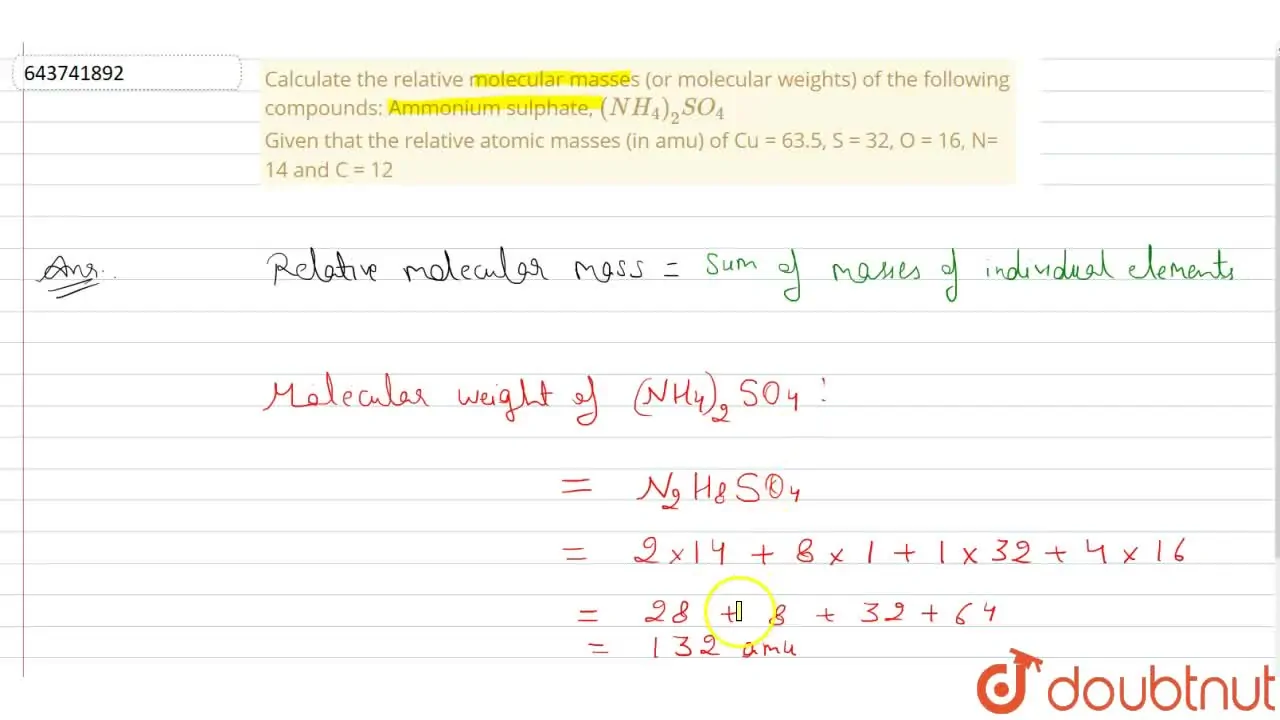 643741892
Calculate the relative molecular masses (or molecular weights) of the following
compounds: Ammonium sulphate, (NH₄)₂SO₄
Given that the relative atomic masses (in amu) of Cu = 63.5, S = 32, O = 16, N=
14 and C = 12
Ans.
Relative molecular mass = Sum of masses of individual elements
Molecular weight of (NH₄)₂SO₄ :
= N₂H₈SO₄
= 2 × 14 + 8 × 1 + 1 × 32 + 4 × 16
= 28 + 8 + 32 + 64
= 132 amu
doubtnut